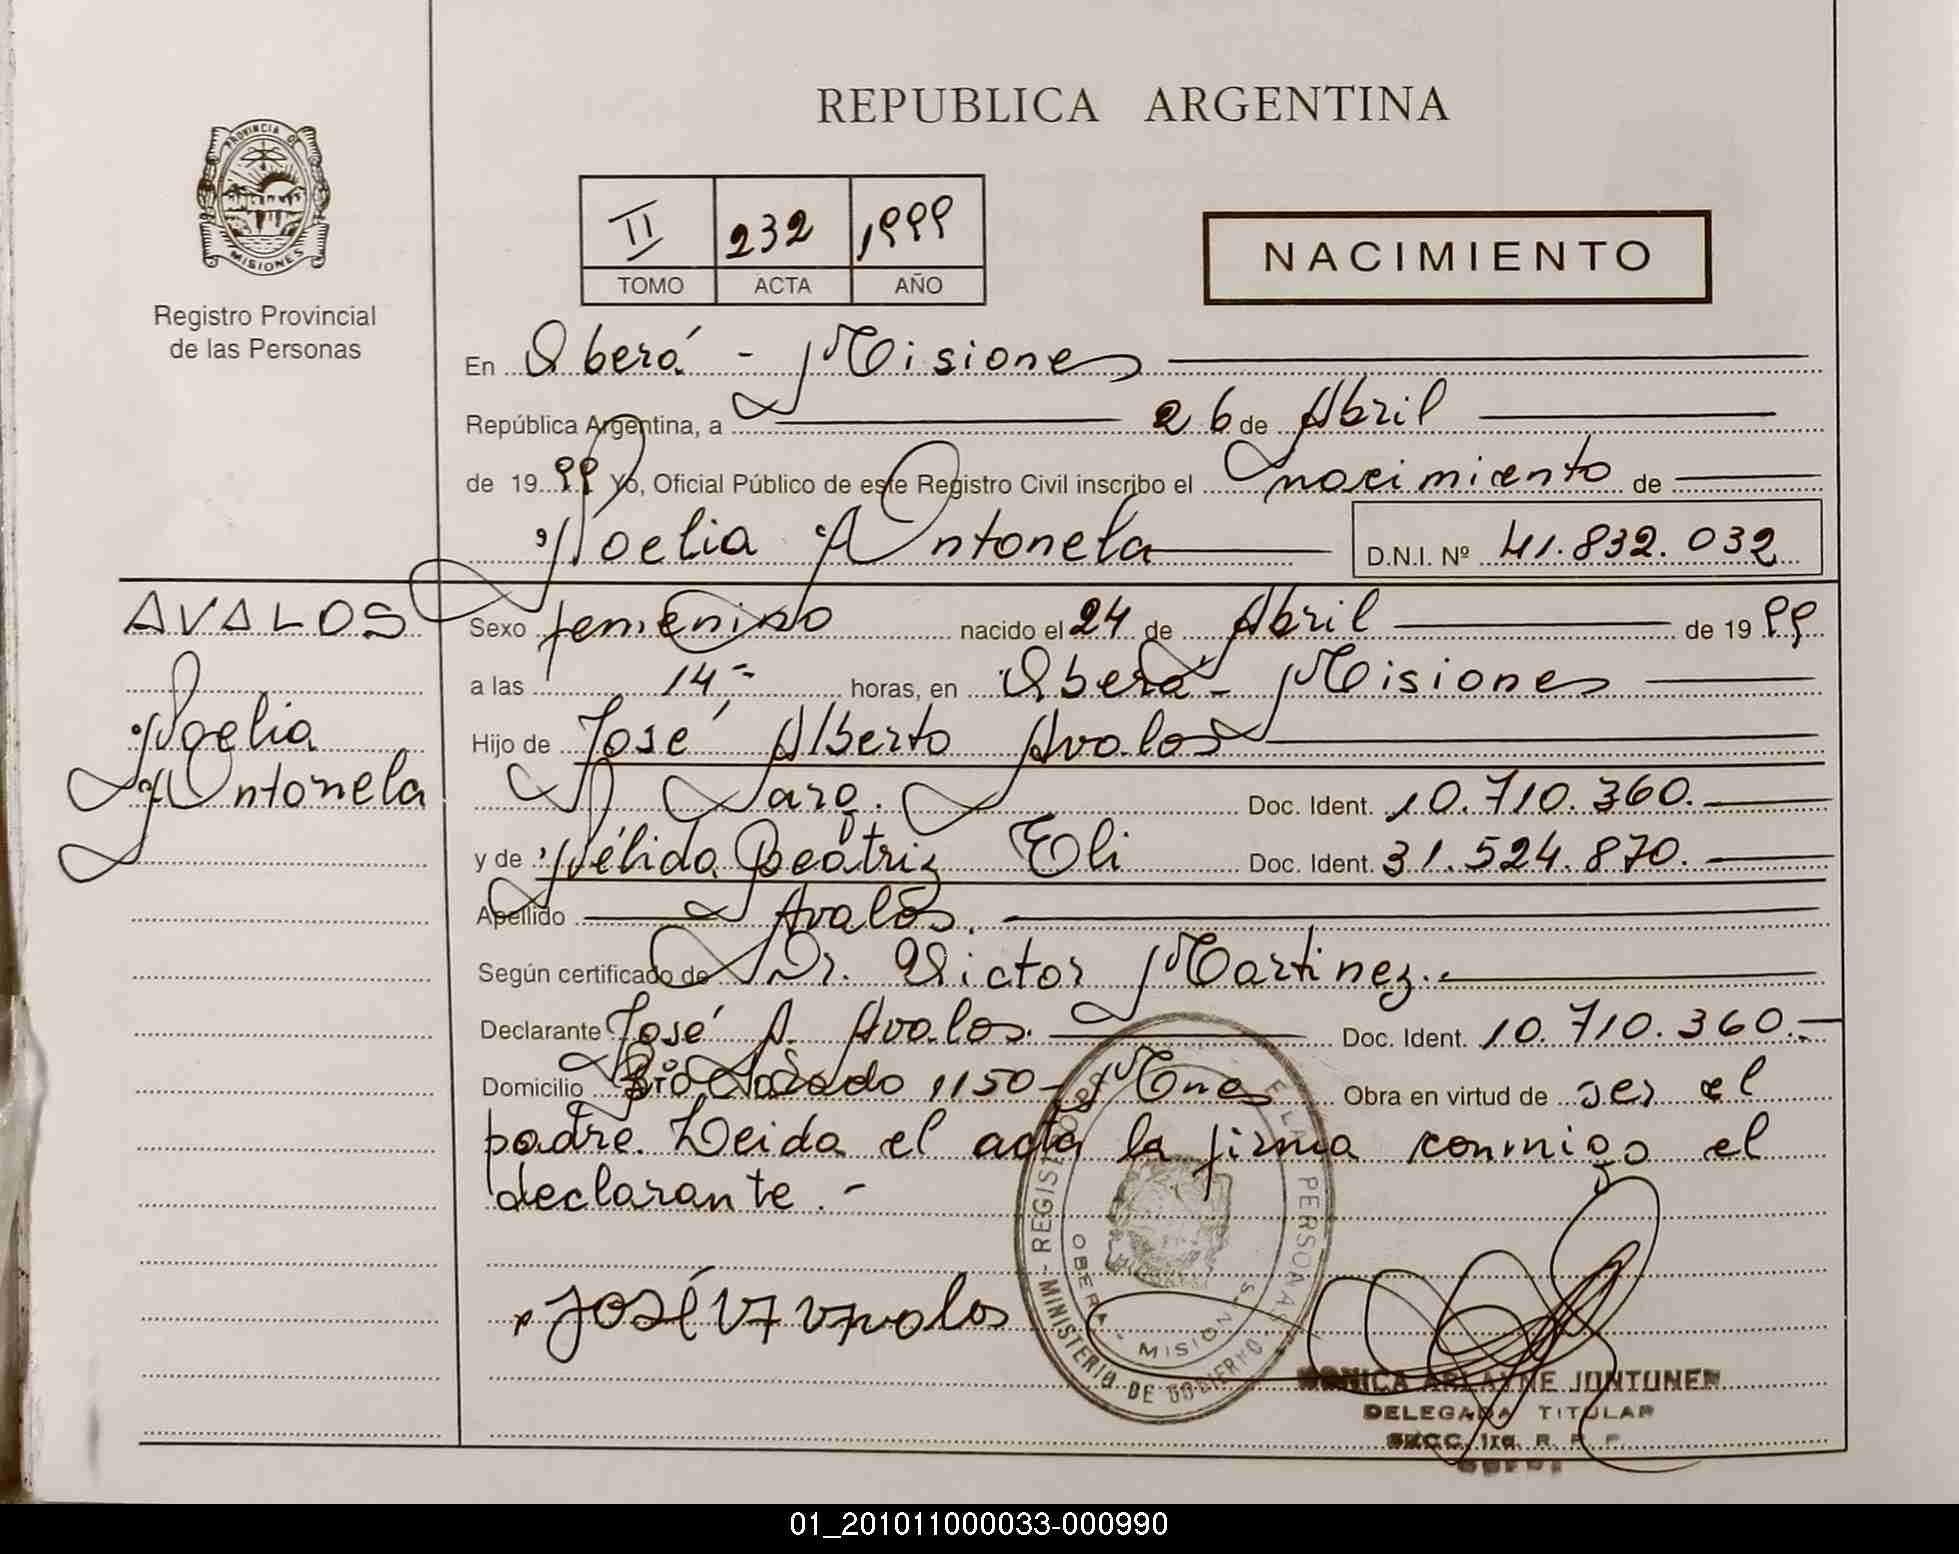 REPUBLICA ARGENTINA
PROVINCIA DE
MISIONES
Registro Provincial
de las Personas
II 232 1999
TOMO ACTA AÑO
NACIMIENTO
En Oberá - Misiones
República Argentina, a 26 de Abril
de 1999 Yo, Oficial Público de este Registro Civil inscribo el nacimiento de
Noelia Antonela D.N.I. Nº 41.832.032
AVALOS
Noelia
Antonela
Sexo femenino nacido el 24 de Abril de 1999
a las 14- horas, en Oberá - Misiones
Hijo de José Alberto Avalos
Arg. Doc. Ident. 10.710.360.
y de Nélida Beatriz Eli Doc. Ident. 31.524.870.
Apellido Avalos.
Según certificado de Dr. Victor Martinez.-
Declarante José A. Avalos. Doc. Ident. 10.710.360.-
Domicilio Bº 1150 - Mnes Obra en virtud de ser el
padre. Leida el acta la firma conmigo el
declarante.-
José A Avalos
REGISTRO DE LAS PERSONAS
OBERA - MISIONES
MINISTERIO DE GOBIERNO
MONICA ARLAYNE JUNTUNEN
DELEGADA TITULAR
SECC. 1ra. R. P. P.
01_201011000033-000990